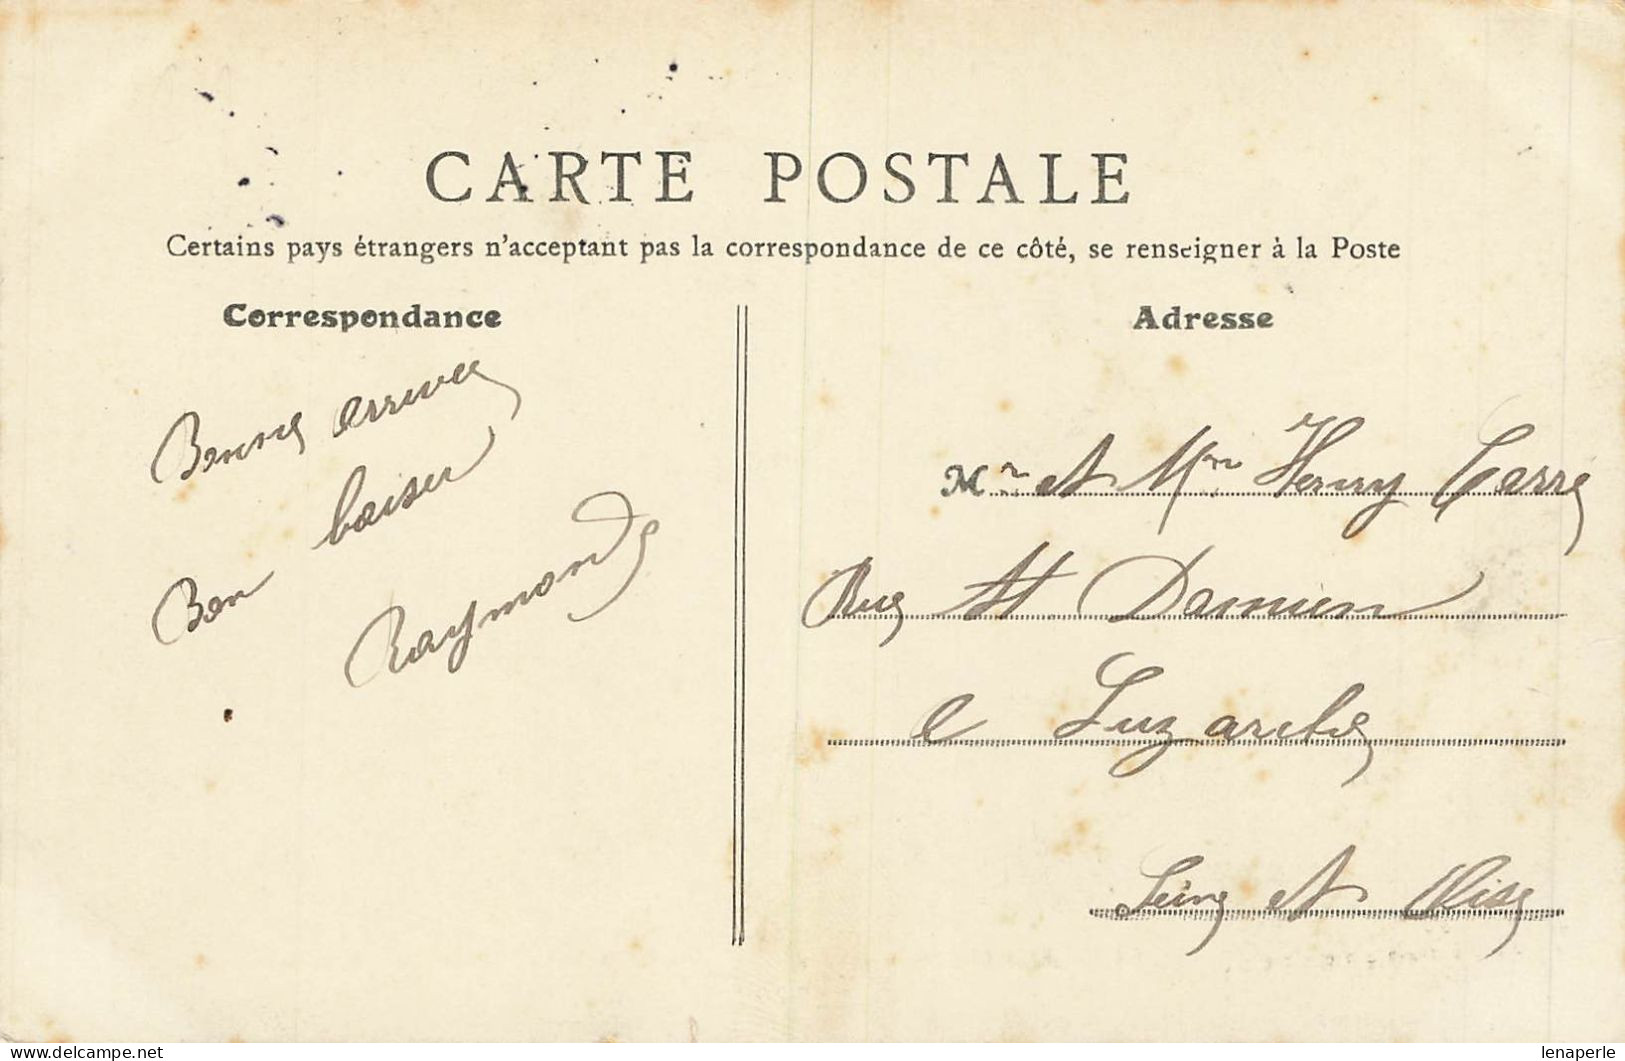 CARTE POSTALE
Certains pays étrangers n'acceptant pas la correspondance de ce côté, se renseigner à la Poste
Correspondance
Bonne arrivée
Bon baiser
Raymonde
Adresse
Mr et Mme Henry Carré
Rue St Damien
a Luzarche
Seine et Oise
lenaperle